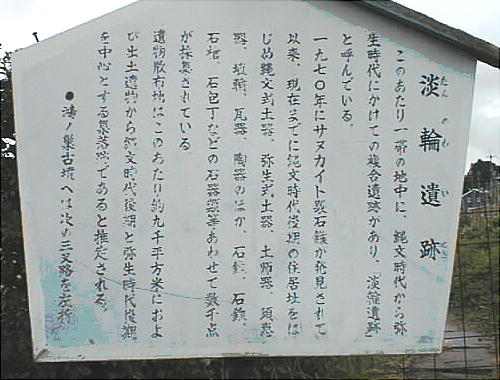 淡輪遺跡
たんのわいせき
このあたり一帯の地中に、縄文時代から弥
生時代にかけての複合遺跡があり、「淡輪遺跡」
と呼んでいる。
一九七〇年にサヌカイト製石鏃が発見されて
以来、現在までに縄文時代後期の住居址をは
じめ縄文式土器、弥生式土器、土師器、須恵
器、埴輪、瓦器、陶器のほか、石鏃、石錐、
石槍、石包丁などの石器類等あわせて数千点
が採集されている。
遺物散布地はこのあたり約九千平方米におよ
び出土遺物から縄文時代後期と弥生時代後期
を中心とする集落跡であると推定される。
●鴻ノ巣古墳へは次の三叉路を右折